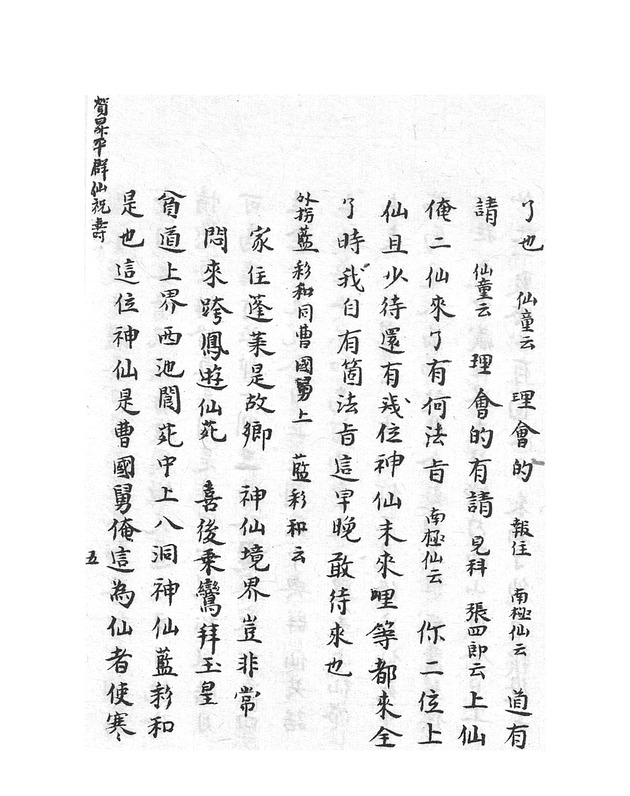 了也 仙童云 理會的 報住 南極仙云 道有
請 仙童云 理會的有請 見科 張四郎云 上仙
俺二仙來了有何法旨 南極仙云 你二位上
仙且少待還有幾位神仙未來哩等都來全
了時我自有箇法旨這早晚敢待來也
外扮藍彩和同曹國舅上 藍彩和云
家住蓬萊是故鄉 神仙境界豈非常
悶來跨鳳遊仙苑 喜後乗鸞拜玉皇
貧道上界西池閬苑中上八洞神仙藍彩和
是也這位神仙是曹國舅俺這為仙者使寒
賀昇平群仙祝壽
五